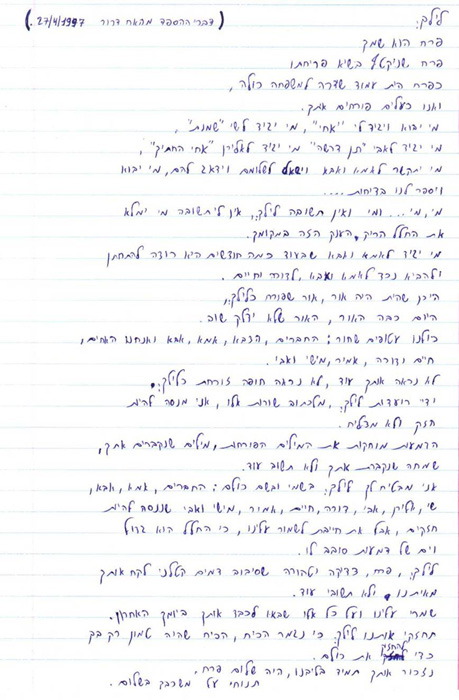 לילך: (דברי ההספד מהאח דרור 27/4/1997.)
פרח הוא שמך
פרח שניקטף בשיא פריחתו
כפרח היית עמוד שדרה למשפחה כולה,
ואנו כעלים פורחים אתך.
מי יבוא ויגיד לי "אחי", מי יגיד לשי "שמנת",
מי יגיד לאבי "תן דרשה" מי יגיד לאלירן "אחי החתיק",
מי יתקשר לאמא ואבא וישאל לשלומם וידאג להם, מי יבוא
ויספר לנו בדיחות....
מי, מי... ומי ואין תשובה לילך, אין לי תשובה מי ימלא
את החלל הריק, הענק הזה במקומך.
מי יגיד לאמא ואבא שבעוד כמה חודשים היא רוצה להתחתן
ולהביא נכד לאמא ואבא, לדורה וחיים.
היכן שהית היה אור, אור שפורח כלילך,
היום כבה האור, האור שלא ידלק שוב.
כולנו עטופים שחור: החברים, הצבא, אמא, אבא ואנחנו האחים,
חיים ודורה, אמיר, מישי ואבי.
לא נראה אותך עוד, לא נראה חופה זורחת כלילך.
ידיי רועדות לילך, מלכתוב שורות אלו, אני מנסה להיות
חזק ולא מצליח.
הדמעות מוחקות את המילים הפורחות, מילים שנקברים אתך,
שמחה שנקברת אתך ולא תשוב עוד.
אני מבטיח לך לילך, בשמי ובשם כולם: החברים, אמא, אבא,
שי, אליק, אבי, דורה, חיים, אמיר, מישי ואבי שננסה להיות
חזקים, אבל את חייבת לשמור עלינו, כי החלל הוא גדול
וים של דמעות סובב לו.
לילך, פרח, צדיקה וטהורה שסיבוב דמים הטלני לקח אותך
מאיתנו, ולא תשובי עוד.
שמרי עלינו ועל כל אלו שבאו לכבד אותך ביומך האחרון.
תחזקי אותנו לילך, כי נגמר הכיח, הכיח שהיה טמון רק בך
כדי להחזיק את כולם.
נזכור אותך תמיד בליבנו, היה שלום פרח,
תנוחי על משכבך בשלום.